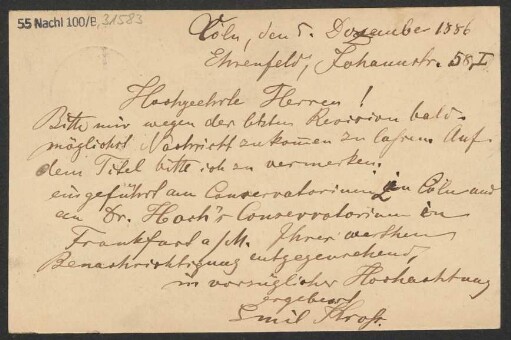 55 Nachl 100/B, 31583
Cöln, den 5. Dezember 1886
Ehrenfeld, Johannstr. 58, I
Hochgeehrte Herren!
Bitte mir wegen der letzten Revision bald-
möglichst Nachricht zukommen zu lassen. Auf
dem Titel bitte ich zu vermerken:
eingeführt am Conservatorium in Cöln und
an Dr. Hoch's Conservatorium in
Frankfurt a/M. Ihrer werthen
Benachrichtigung entgegensehend,
in vorzüglicher Hochachtung
ergebenst
Emil Kross.